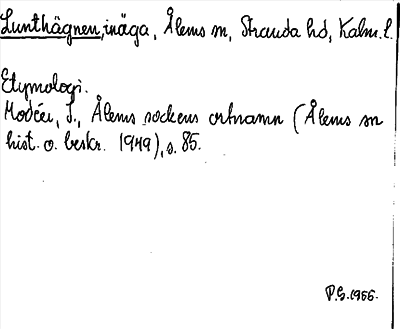 Lunthägnen, inäga, Ålems sn, Stranda hd, Kalm. l.
Etymologi.
Modéer, I., Ålems sockens ortnamn (Ålems sn
hist. o. beskr. 1949), s. 85.
P.S. 1966.